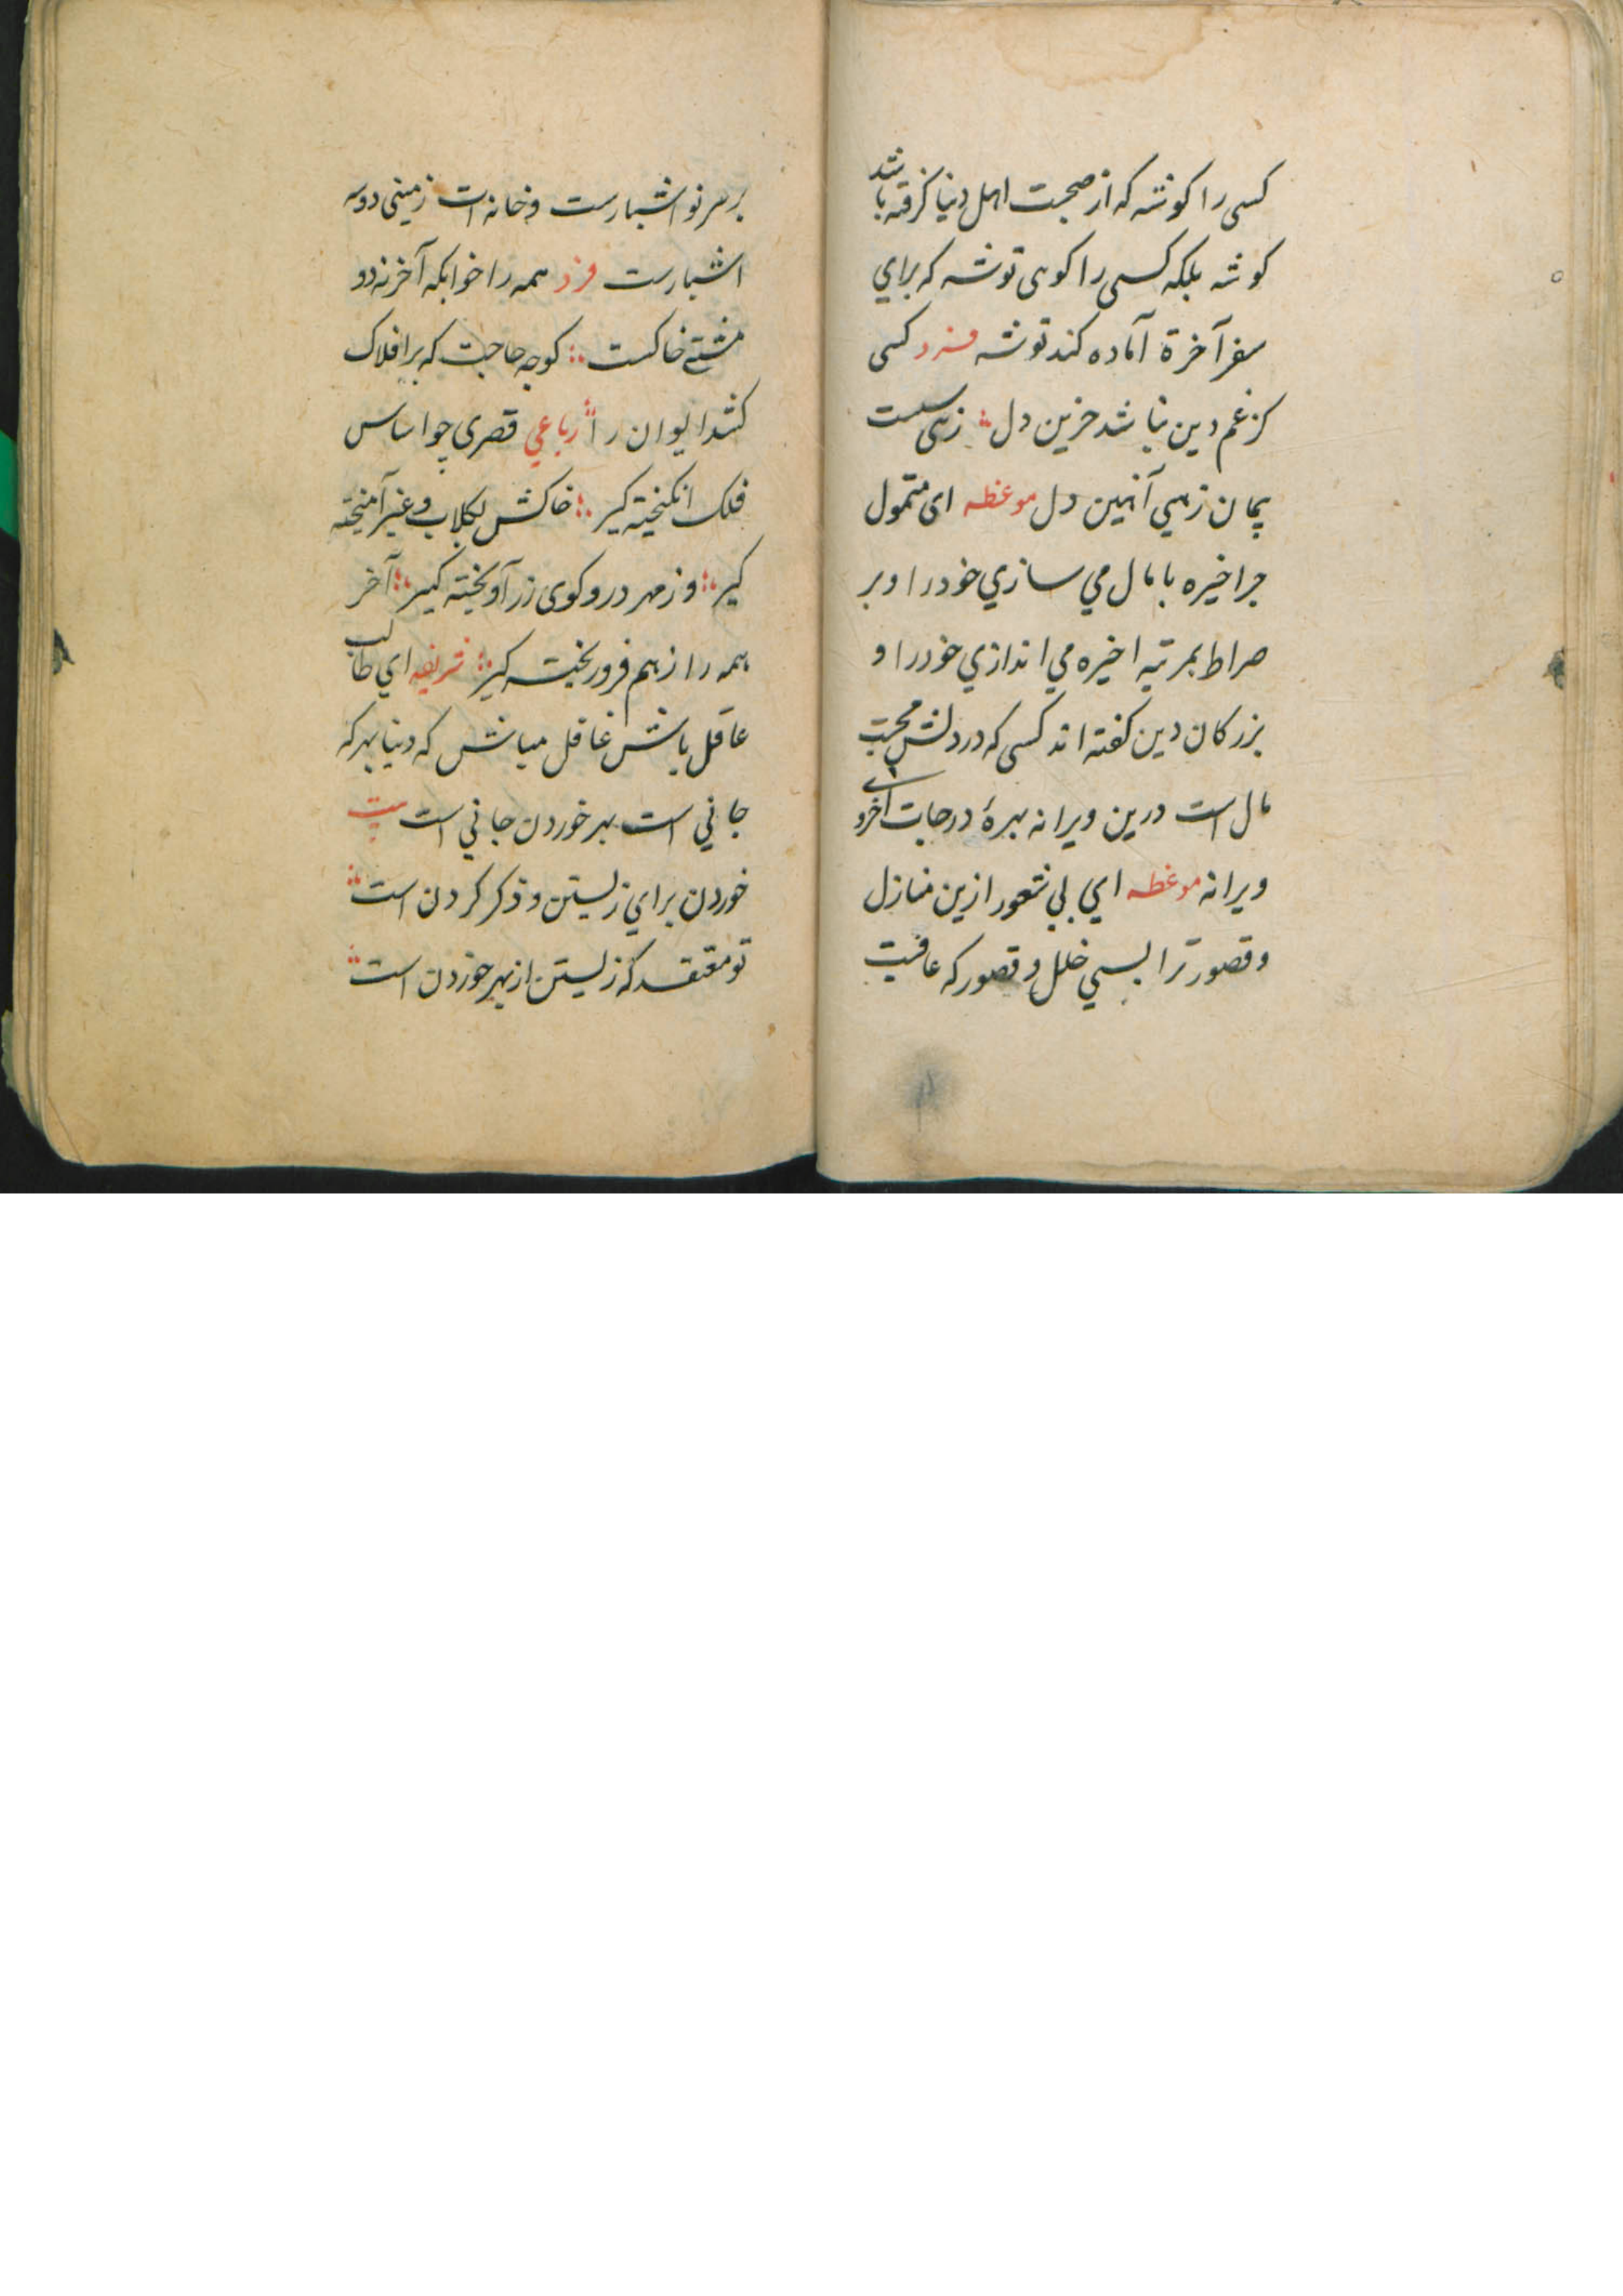 کسی را کوشه که از صحبت اهل دنیا کرفته باشد
کوشه بلکه کسی را کوی توشه که برای
سفر آخرة آماده کند توشه فرد کسی
کز غم دین نباشد حزین دل زهی سست
پیمان زهی آهنین دل موعظه ای متمول
جرا خیره با مال می سازی خود را و بر
صراط بمرتبه اخیره می اندازی خود را و
بزرکان دین کفته اند کسی که در دلش محبت
مال است درین ویرانه بهرهٔ درجات آخروی
ویرانه موعظه ای بی شعور ازین منازل
و قصور ترا بسی خلل و قصور که عاقبت
بر سر تو انبارست و خانه است زمینی دو سه
انبارست فرد همه را خوابکه آخر نه دو
مشتی خاکست کو چه حاجت که بر افلاک
کشد ایوان را رباعی قصری چو اساس
فلک انکیخته کیر خاکش بکلاب و عنبر آمیخته
کیر و ز مهر درو کوی زر آویخته کیر آخر
همه را ز هم فرو ریخته کیر شریفه ای طالب
عاقل باش غافل مباش که دنیا بهر که
جانی است بهر خوردن جانی است بیت
خوردن برای زیستن و ذکر کردن است
تو معتقد که زیستن از بهر خوردن است